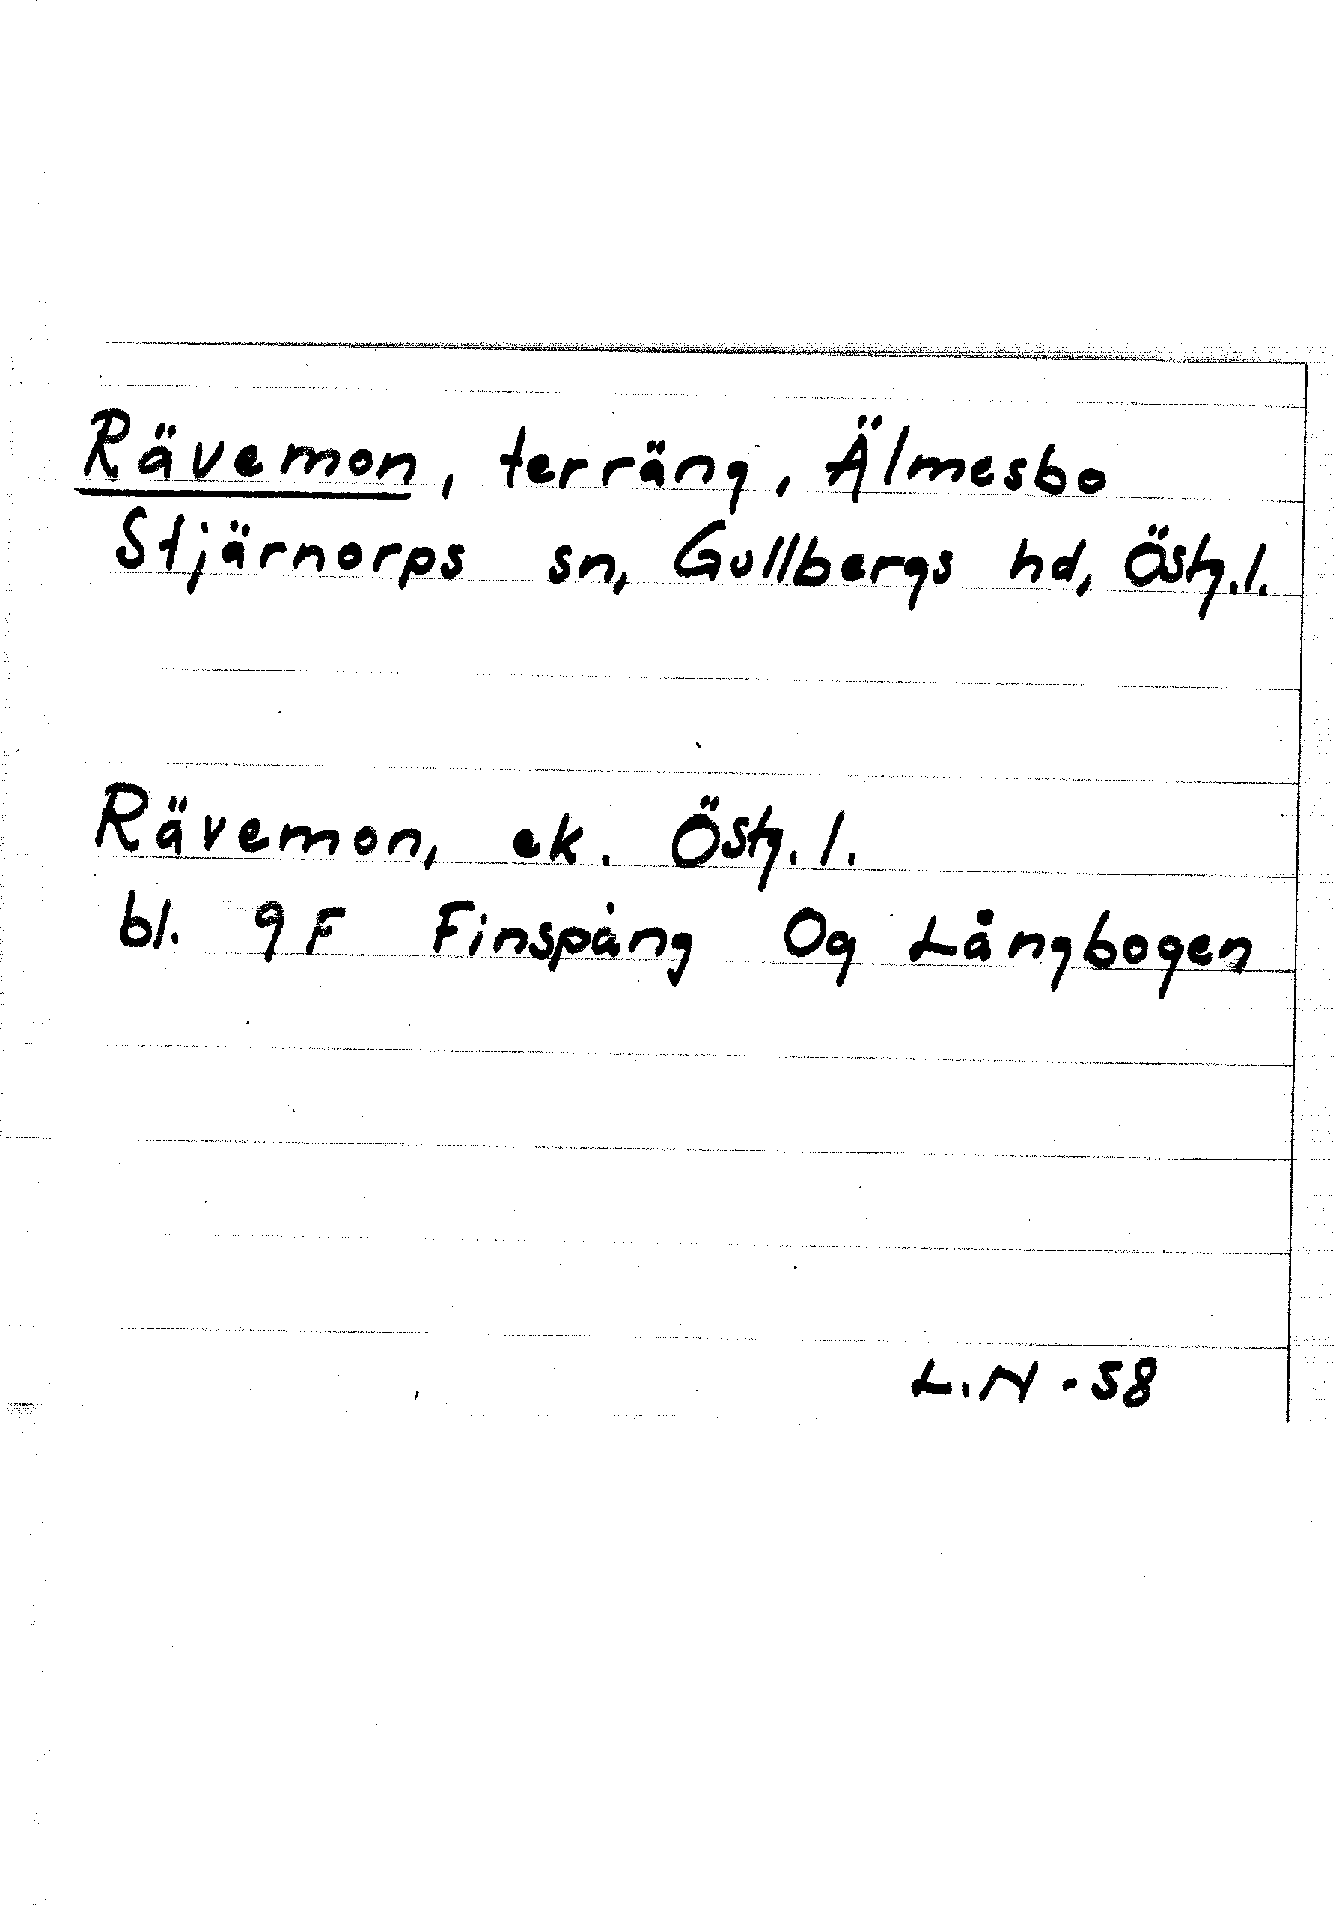 Rävemon, terräng, Älmesbo
Stjärnorps sn, Gullbergs hd, Östg.l.
Rävemon, ek. Östg.l.
bl. 9F Finspång Og Långbogen
L.N - 58